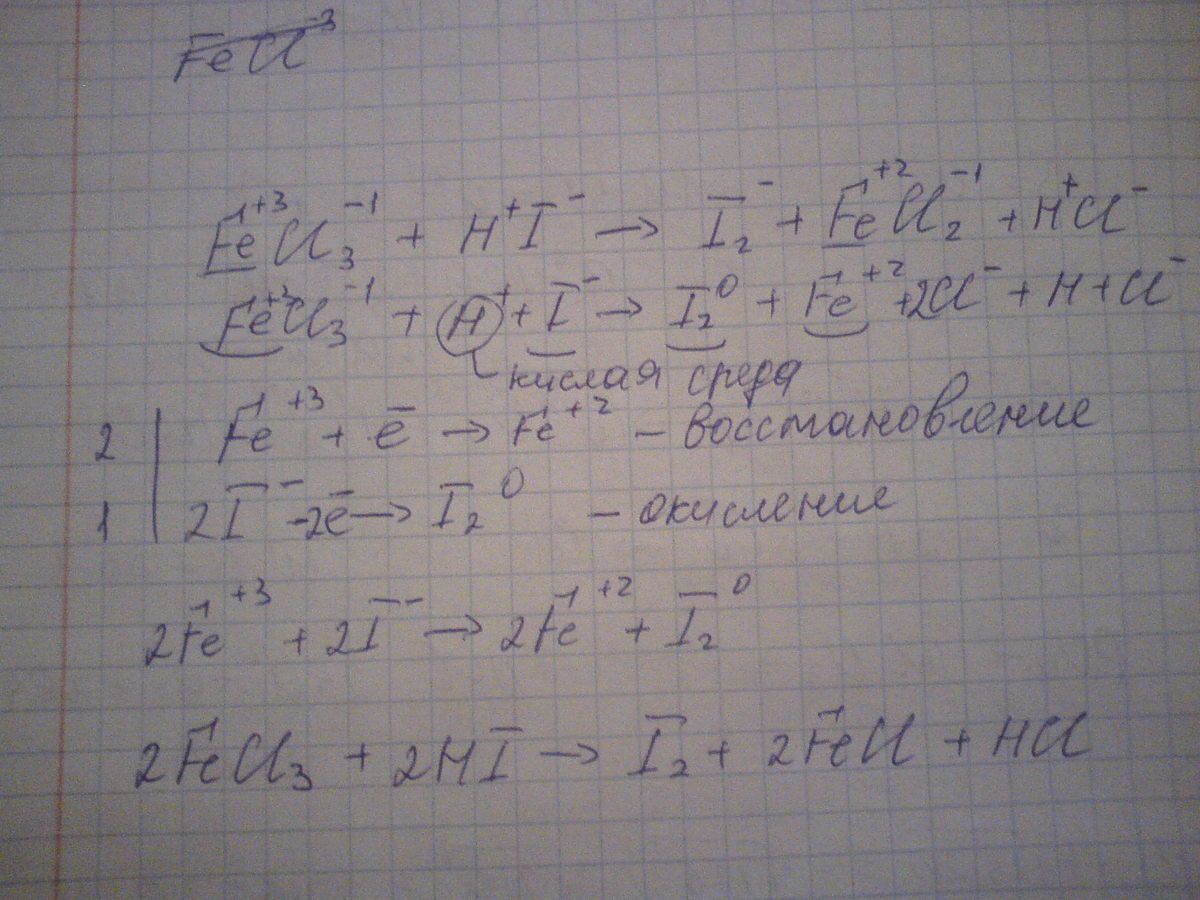 FeCl⁻³
Fe⁺³Cl₃⁻¹ + H⁺I⁻ → I₂⁻ + Fe⁺²Cl₂⁻¹ + H⁺Cl⁻
Fe⁺³Cl₃⁻¹ + H⁺ + I⁻ → I₂⁰ + Fe⁺² + 2Cl⁻ + H + Cl⁻
кислая среда
2 | Fe⁺³ + ē → Fe⁺² – восстановление
1 | 2I⁻ - 2ē → I₂⁰ – окисление
2Fe⁺³ + 2I⁻ → 2Fe⁺² + I₂⁰
2FeCl₃ + 2HI → I₂ + 2FeCl + HCl